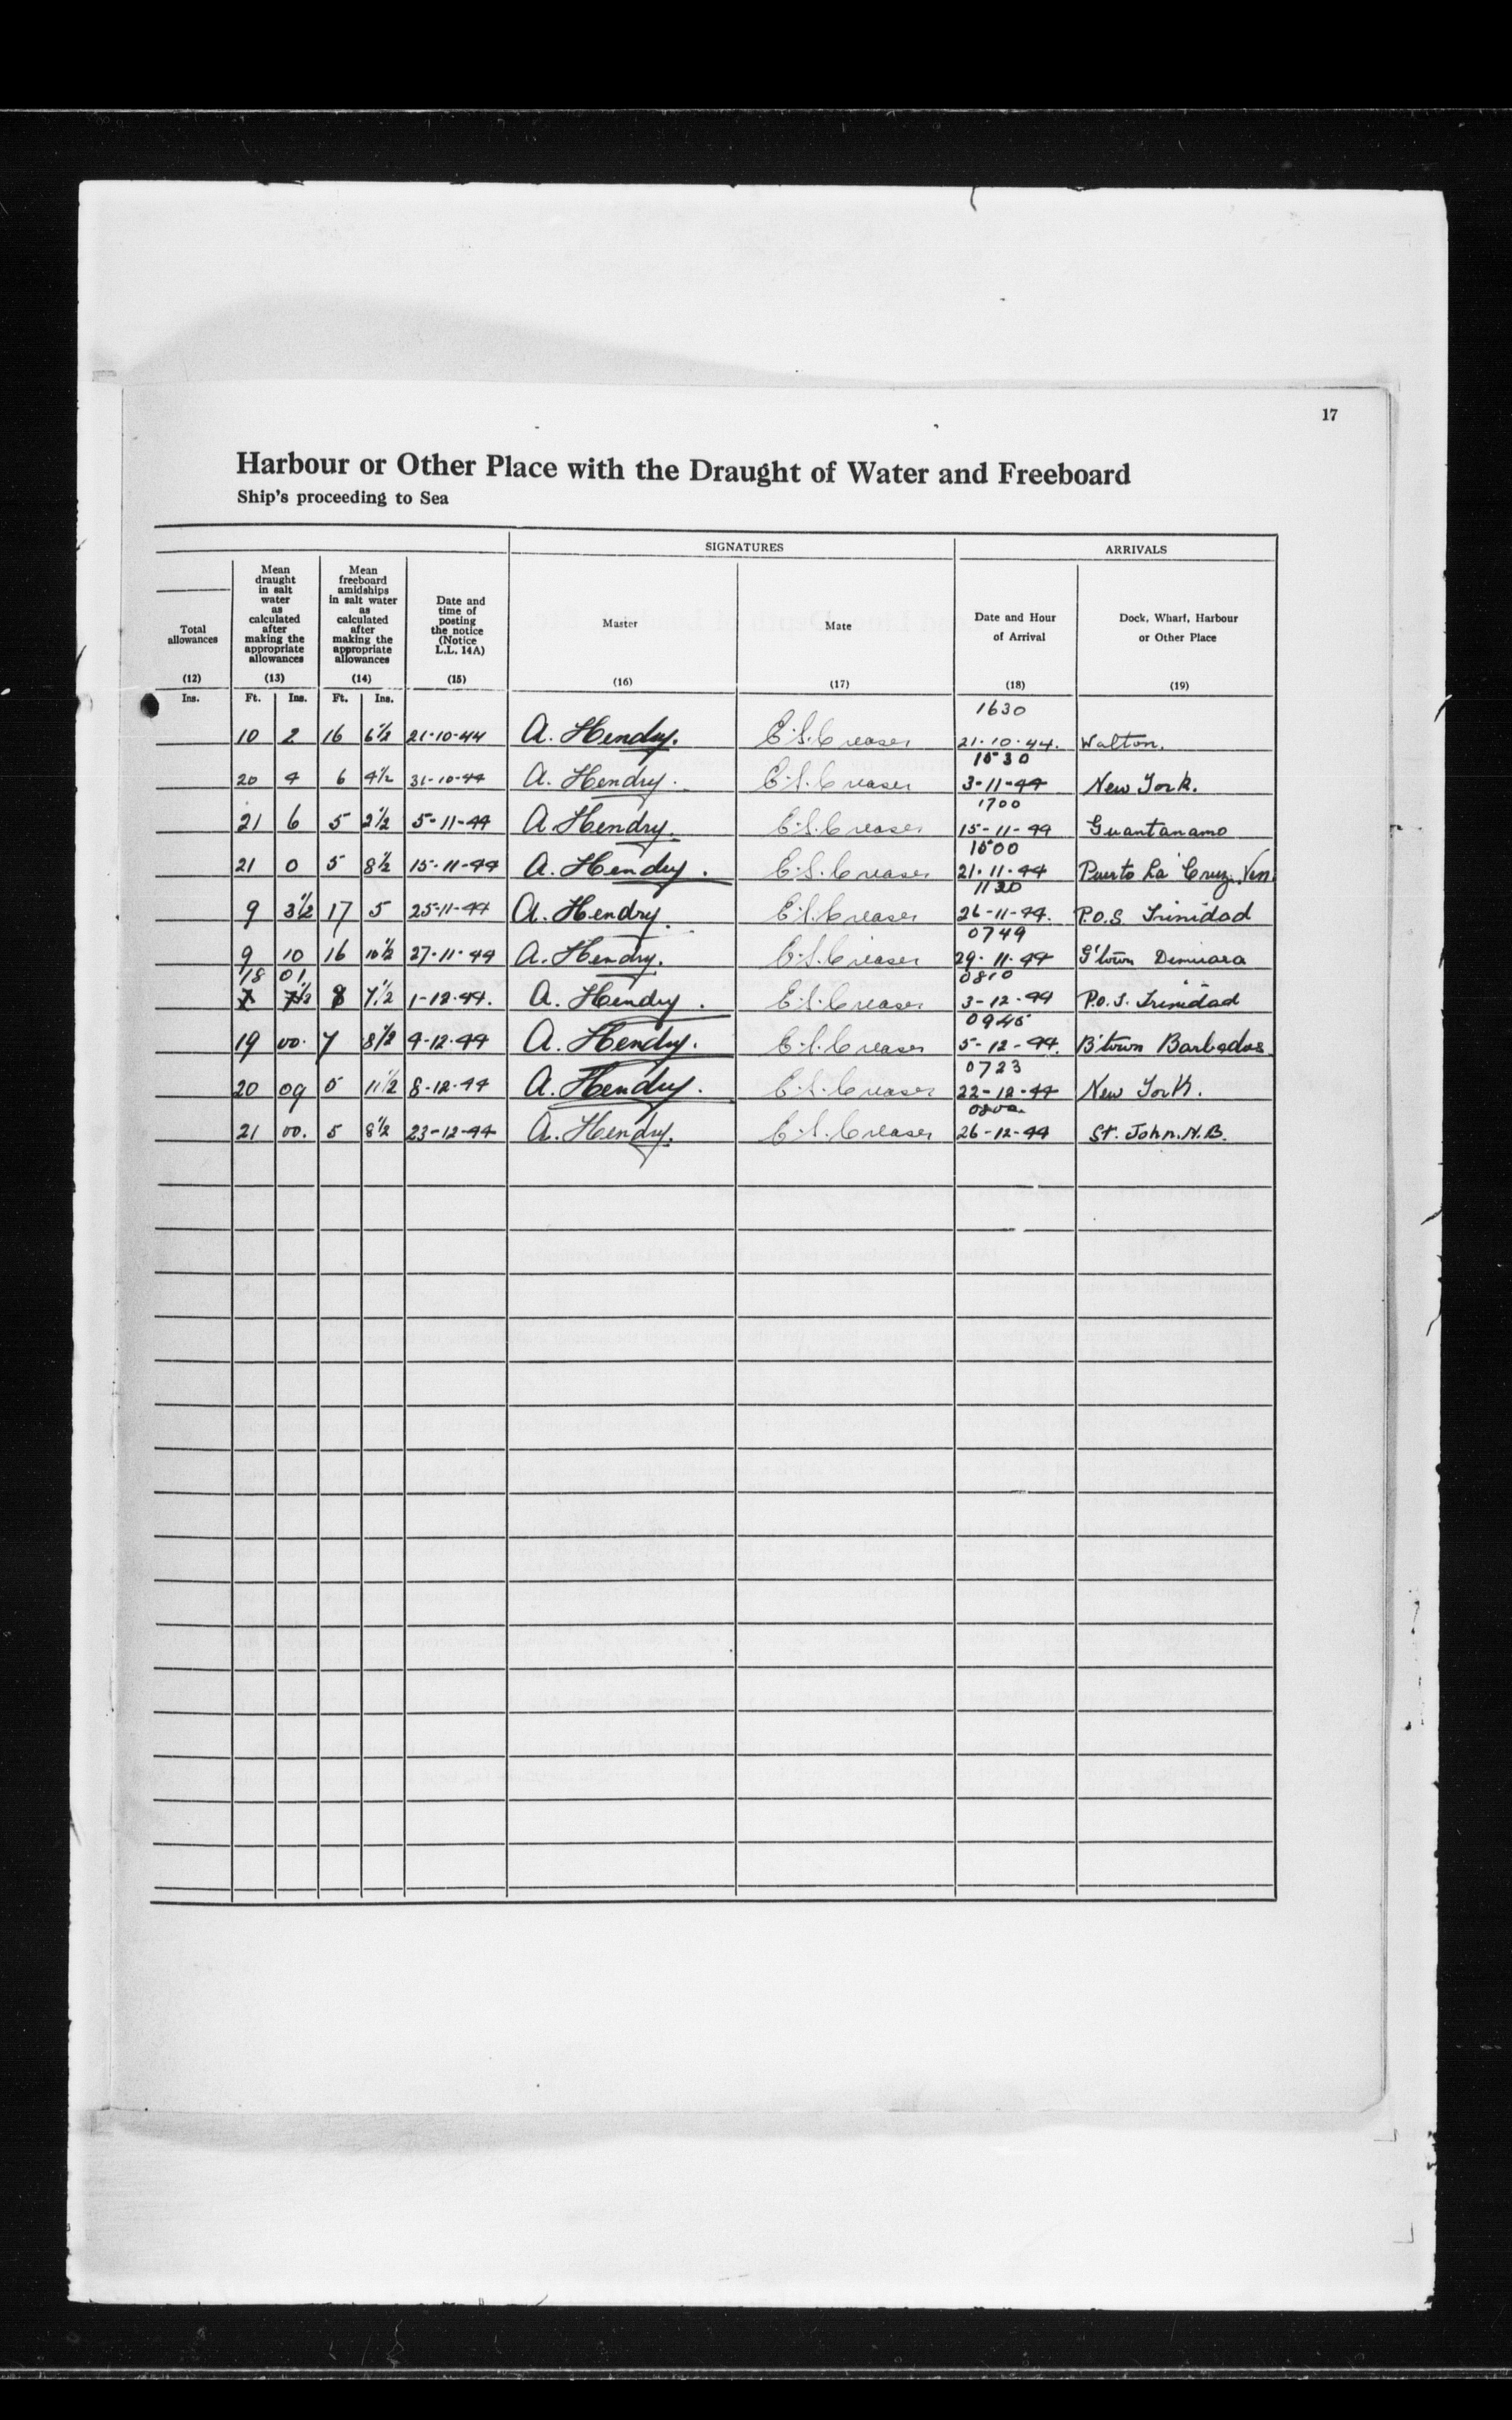 17
Harbour or Other Place with the Draught of Water and Freeboard
Ship's proceeding to Sea
SIGNATURES ARRIVALS
Total allowances (12) Ins.
Mean draught in salt water as calculated after making the appropriate allowances (13) Ft. Ins.
Mean freeboard amidships in salt water as calculated after making the appropriate allowances (14) Ft. Ins.
Date and time of posting the notice (Notice L.L. 14A) (15)
Master (16)
Mate (17)
Date and Hour of Arrival (18)
Dock, Wharf, Harbour or Other Place (19)
1630
10 2 16 6½ 21-10-44 A. Hendry. E.S. Creaser 21.10.44. Walton.
1530
20 4 6 4½ 31-10-44 A. Hendry. E.S. Creaser 3-11-44 New York.
1700
21 6 5 2½ 5-11-44 A. Hendry. E.S. Creaser 15-11-44 Guantanamo
1500
21 0 5 8½ 15-11-44 A. Hendry. E.S. Creaser 21.11.44 Puerto La Cruz. Ven.
1120
9 3½ 17 5 25-11-44 A. Hendry. E.S. Creaser 26-11-44. P.O.S. Trinidad
0749
9 10 16 10½ 27-11-44 A. Hendry. E.S. Creaser 29.11.44 G'town Demerara
18 01 0810
7 7½ 8 7½ 1-12-44. A. Hendry. E.S. Creaser 3-12-44 P.O.S. Trinidad
0945
19 00. 7 8½ 4-12-44 A. Hendry. E.S. Creaser 5-12-44. B'town Barbados
0723
20 09 5 11½ 8-12-44 A. Hendry. E.S. Creaser 22-12-44 New York.
0800
21 00. 5 8½ 23-12-44 A. Hendry. E.S. Creaser 26-12-44 St. John. N.B.